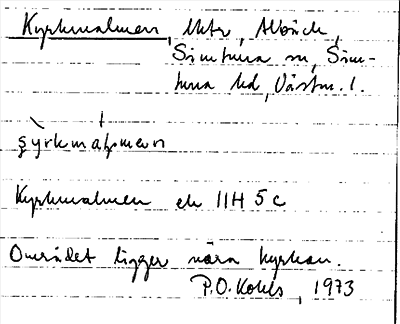 Kyrkmalmen, Uktr, Alböck,
Simtuna sn, Sim-
tuna hd, Västm. l.
Kyrkmalmen ek 11H 5c
Området ligger nära kyrkan.
P.O. Kohls, 1973